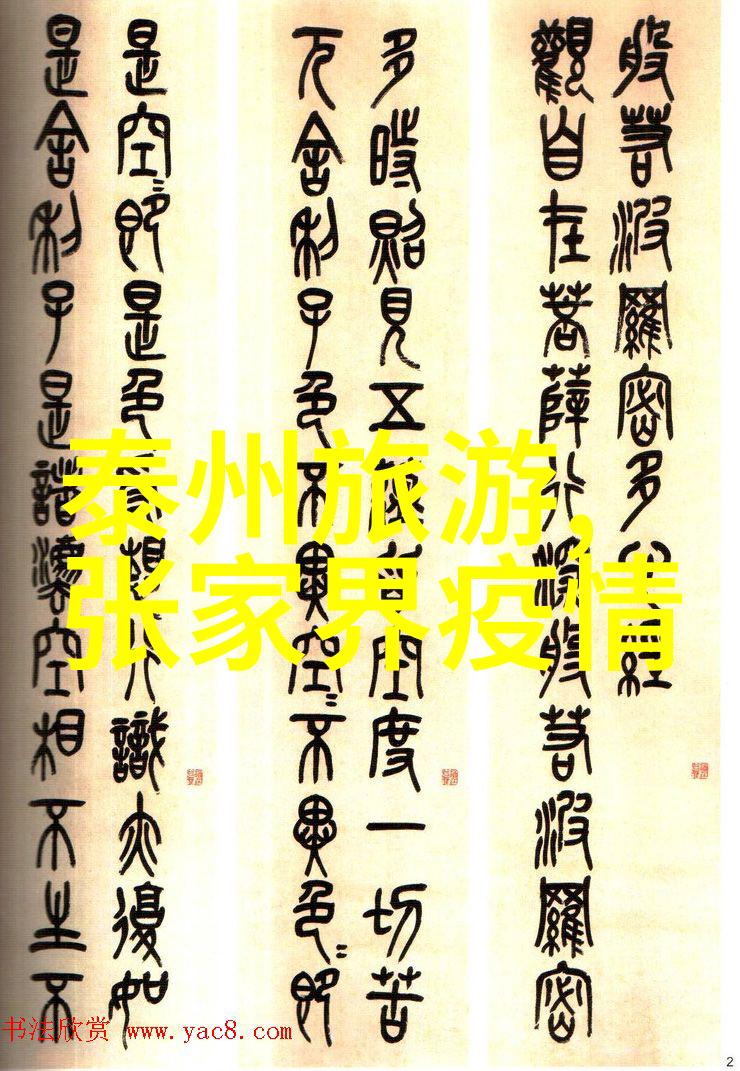 般若波羅密多心經
觀自在菩薩行深般若波羅密
多時照見五蘊皆空度一切苦
厄舍利子色不異空〻不異色〻即
是空〻即是色受想行識亦復如
是舍利子是諸灋空相不生不
泰州旅游,
张家界疫情
书法欣赏 www.yac8.com
2